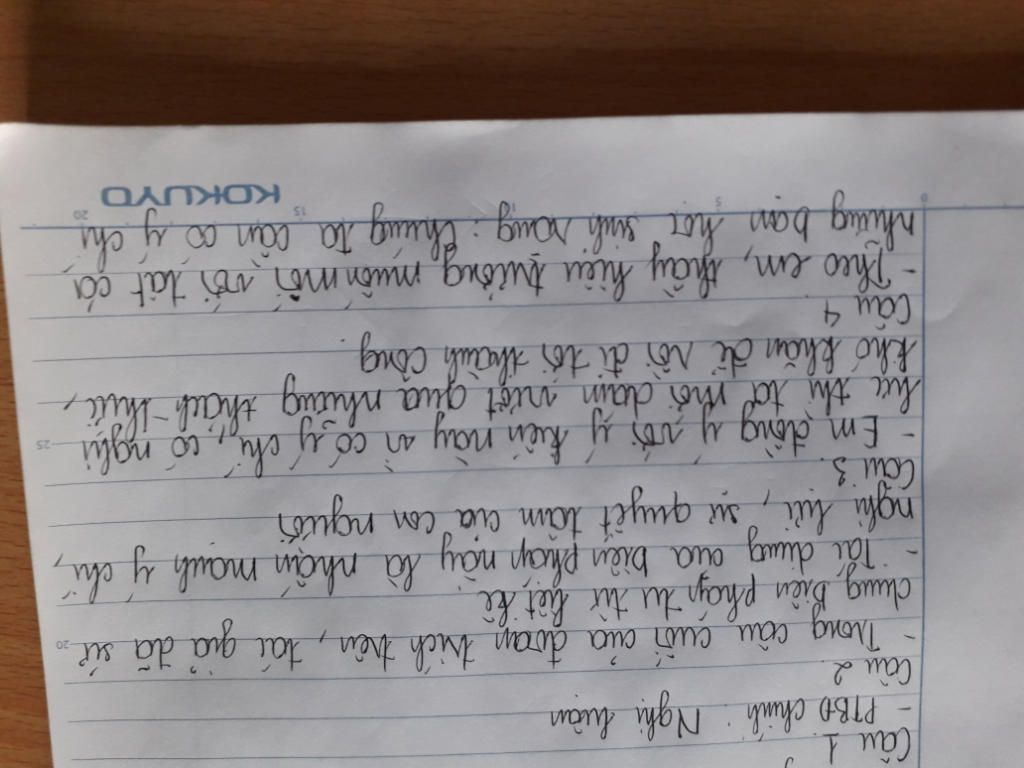 Câu 1.
- PTBĐ chính: Nghị luận
Câu 2.
- Trong câu cuối của đoạn trích trên, tác giả đã sử
20
dụng biện pháp tu từ liệt kê.
- Tác dụng của biện pháp này là nhấn mạnh ý chí,
nghị lực, sự quyết tâm của con người
Câu 3.
- Em đồng ý với ý kiến này vì có ý chí, có nghị
25
lực thì ta mới dám vượt qua những thách thức,
khó khăn để rồi đi tới thành công.
Câu 4
- Theo em, thầy hiệu trưởng muốn nói với tất cả
những bạn học sinh rằng: Chúng ta cần có ý chí
0 5 15 20
KOKUYO